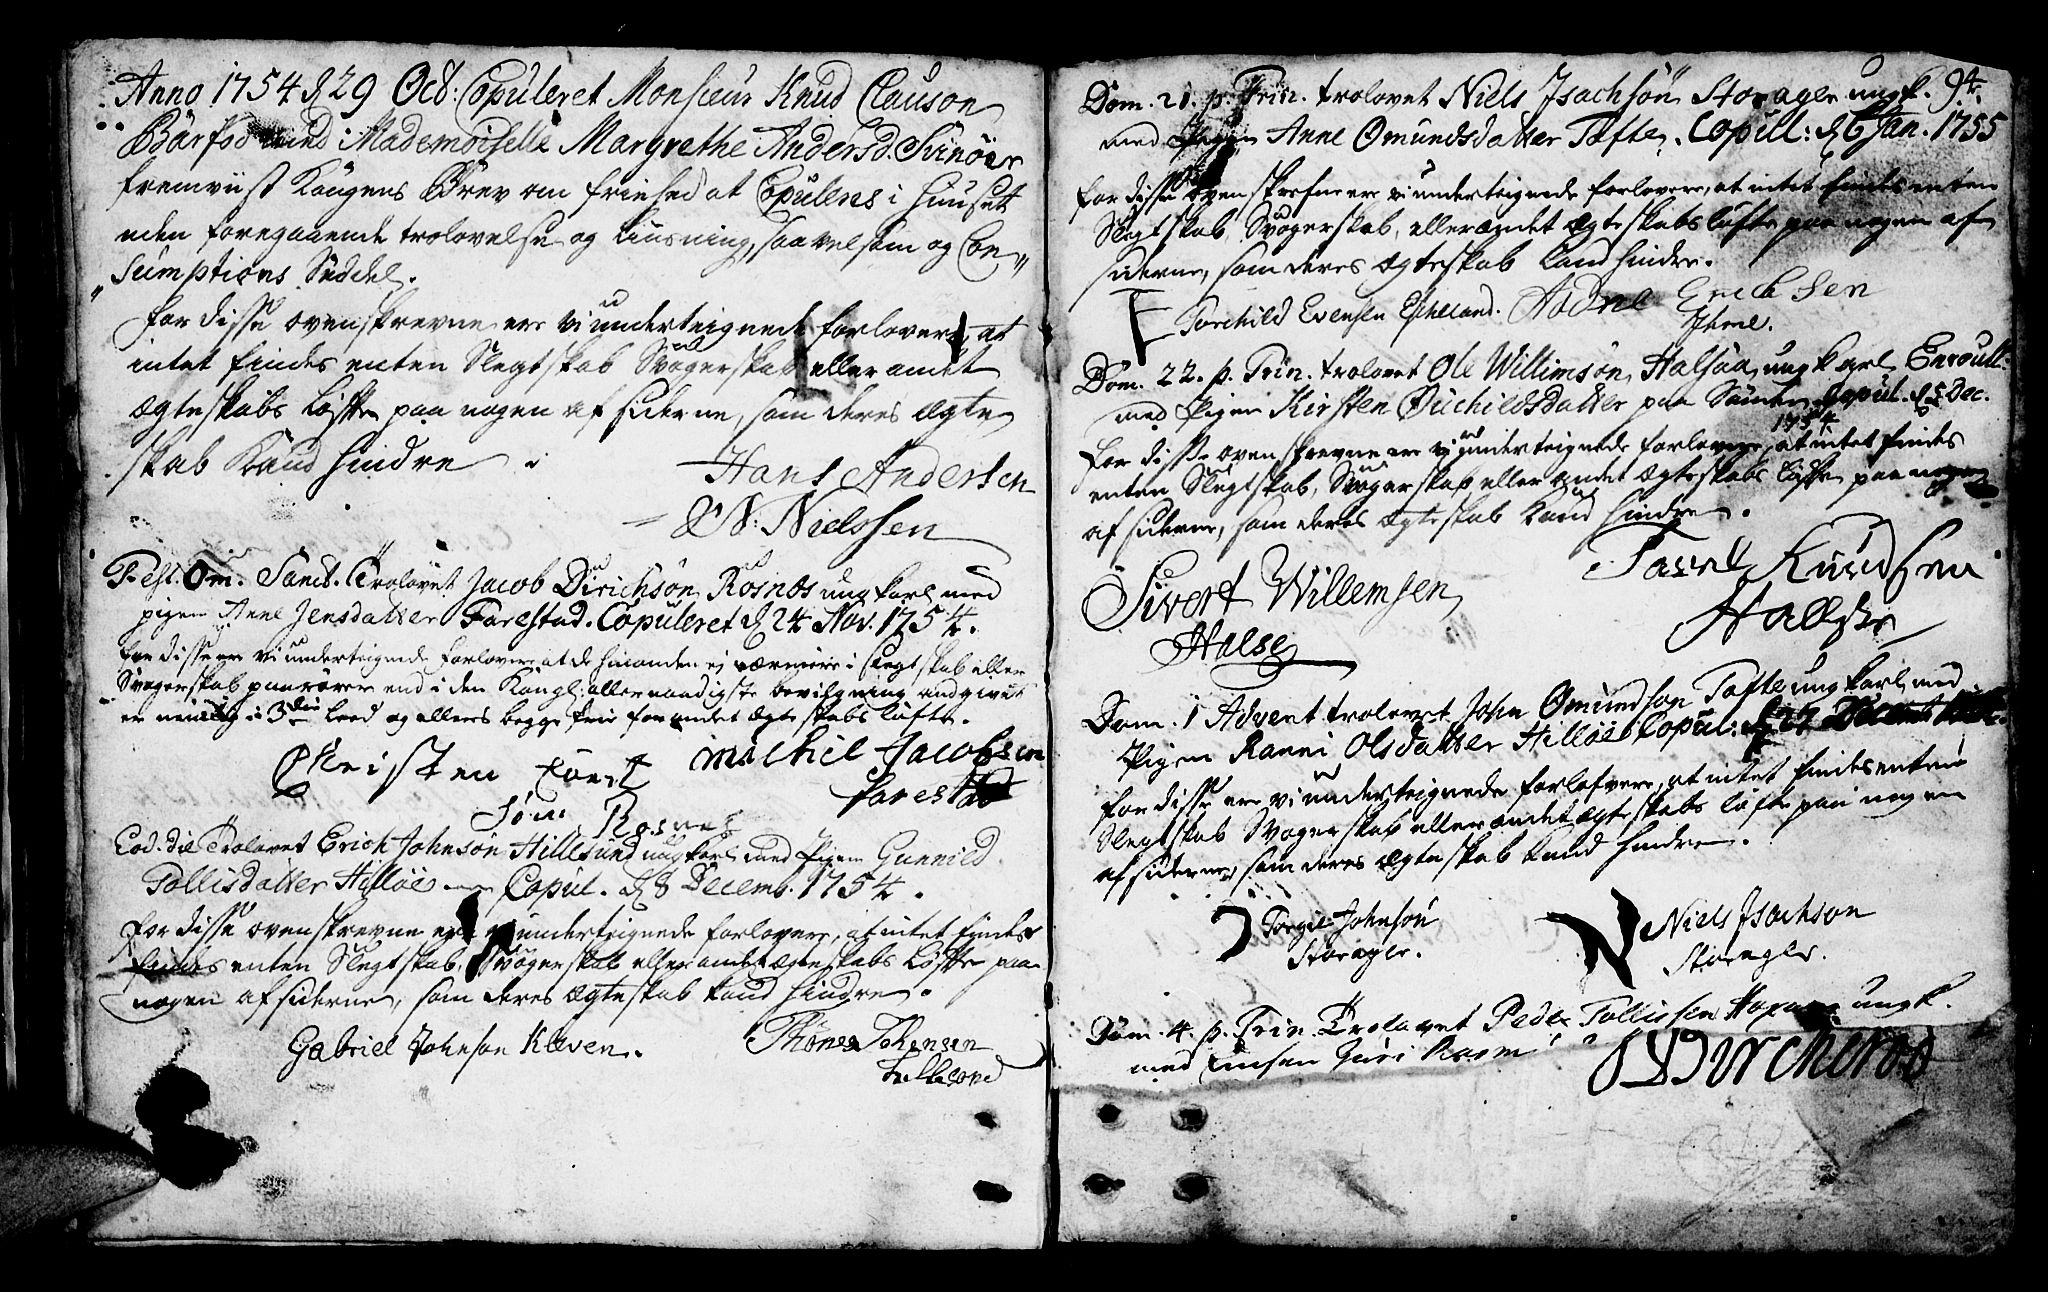 Anno 1754 d 29 Oct: Copuleret Monsieur Knud Clauson
Barfod med Mademoiselle Margrethe Andersd. Svinøer
fremviist Kongens Brev om friehed at Copuleres i Huuset
uden foregaaende trolovelse og Liusning, saavelsom og Con„
„sumptions Seddel.
for disse ovenskrevne ere vi underteignede forlovere, at
intet findes enten Slegtskab Svogerskab eller andet
Ægteskabs Løfte paa nogen af siderne, som deres Ægte
skab Kand hindre
Hans Andersen
N: Nielssen
Fest. Om. Sanct. Trolovet Jacob Dirichsøn Rosnes ungkarl med
pigen Anne Jensdatter Farestad. Copuleret d 24 Nov. 1754.
for disse ere vi underteignede forlovere at de hinanden ej nærmere i slegtskab eller
Svogerskab paarører end i den Kongl: allernaadigste bevilgning andgivet
er nemlig i 3die Leed og ellers begge frie for andet Ægteskabs løfte.
Christen michel Jacobsen
farestad
Rosnes
Eod. die Trolovet Erich Johnsøn Hillesund ungkarl med Pigen Gunnild
Tollisdatter Hilløe Copul. d 8 Decemb. 1754.
for disse ovenskrevne ere vi underteignede forlovere, at intet findes
findes enten Slegtskab, Svogerskab eller andet Ægteskabs Løfte paa
nogen af siderne, som deres Ægteskab kand hindre.
Gabriel Johnson Kleven. Johensen
94.
Dom. 21. p. Trin. trolovet Niels Jsachsøn Storager ungk.
med Pigen Anne Omundsdatter Tofte. Copull: d 6 Jan. 1755
for disse ovenskrefne ere vi underteignede forlovere, at intet findes enten
Slegtskab, Svogerskab, eller andet Ægteskabs løfte paa nogen af
siderne, som deres Ægteskab kand hindre.
Torchild Evensen Escheland. Aadne Erichsen
Dom. 22. p. Trin. trolovet Ole Willimsøn Halsaa ungkarl Enroull:
med Pigen Kirsten paa Copul. d 5 Dec.
1754
for disse ovenskrevne ere vi underteignede forlovere, at intet findes
enten Slegtskab, Svogerskab eller andet Ægteskabs løfte paa nogen
af siderne, som deres Ægteskab Kand hindre.
Sivert Willemsen Knudsen
Halse
Dom. 1 Advent trolovet John Omundson Tofte ungkarl med
Pigen Ranni Olsdatter Hilløe Copul: d 27
for disse ere vi underteignede forlofvere, at intet findes enten
Slegtskab Svogerskab eller andet Ægteskabs løfte paa nogen
af siderne, som deres Ægteskab kand hindre.
Torgie Johnsøn Niels Jsachson
Storager. Storager.
Dom. 4. p. Trin. Trolovet Peder Tollissen ungk.
med Enken Guri